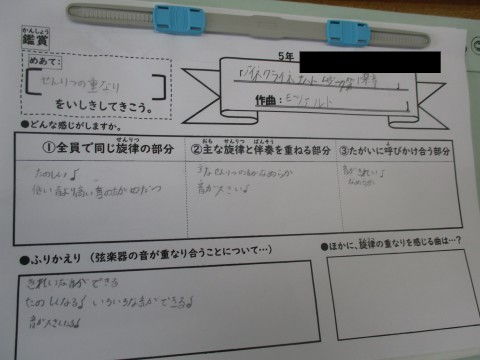 かんしょう
鑑賞
5年
めあて：
せんりつの重なり
をいしきしてきこう。
作曲：モーツァルト
●どんな感じがしますか。
①全員で同じ旋律の部分
②主な旋律と伴奏を重ねる部分
③たがいに呼びかけ合う部分
たのしい♪
低い音より高い音のためめだつ
音が大きい♪
音がきれい♪
なめらか
●ふりかえり（弦楽器の音が重なり合うことについて…）
●ほかに、旋律の重なりを感じる曲は…？
きれいな音ができる
たのしくなる♪ いろいろな音ができる♪
音が大きくなる♪